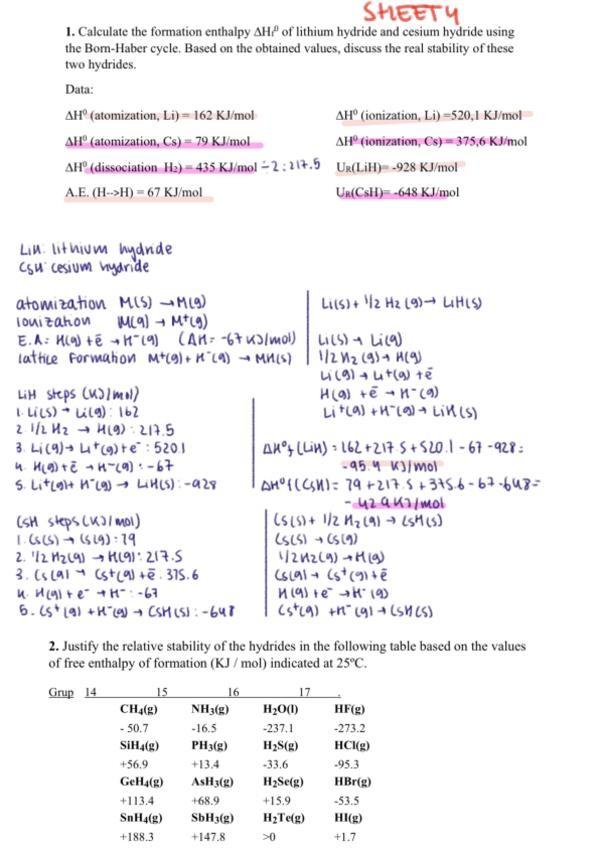 SHEET4
1. Calculate the formation enthalpy ΔHf⁰ of lithium hydride and cesium hydride using
the Born-Haber cycle. Based on the obtained values, discuss the real stability of these
two hydrides.
Data:
ΔH⁰ (atomization, Li) = 162 KJ/mol
ΔH⁰ (ionization, Li) =520,1 KJ/mol
ΔH⁰ (atomization, Cs) = 79 KJ/mol
ΔH⁰ (ionization, Cs) = 375,6 KJ/mol
ΔH⁰ (dissociation H₂) = 435 KJ/mol ÷2: 217.5
UR(LiH)= -928 KJ/mol
A.E. (H-->H) = 67 KJ/mol
UR(CsH)= -648 KJ/mol
LiH: lithium hydride
CSH: cesium hydride
atomization M(s) → M(g)
ionization M(g) → M⁺(g)
E.A: H(g) + ē → H⁻(g) (ΔH= -67 KJ/mol)
lattice Formation M⁺(g) + H⁻(g) → MH(s)
Li(s) + 1/2 H₂ (g) → LiH(s)
Li(s) → Li(g)
1/2 H₂ (g) → H(g)
Li(g) → Li⁺(g) + ē
H(g) + ē → H⁻(g)
Li⁺(g) + H⁻(g) → LiH(s)
LiH steps (KJ/mol)
1. Li(s) → Li(g): 162
2 1/2 H₂ → H(g): 217.5
3. Li(g) → Li⁺(g) + e⁻: 520.1
4. H(g) + ē → H⁻(g): -67
5. Li⁺(g) + H⁻(g) → LiH(s): -928
ΔH°f (LiH) = 162 + 217.5 + 520.1 - 67 - 928 =
-95.4 KJ/mol
ΔH°f (CSH) = 79 + 217.5 + 375.6 - 67 - 648 =
- 42.9 KJ/mol
CSH steps (KJ/mol)
1. Cs(s) → Cs(g): 79
2. 1/2 H₂(g) → H(g): 217.5
3. Cs(g) → Cs⁺(g) + ē: 375.6
4. H(g) + e⁻ → H⁻: -67
5. Cs⁺(g) + H⁻(g) → CSH(s): -648
Cs(s) + 1/2 H₂(g) → CSH(s)
Cs(s) → Cs(g)
1/2 H₂(g) → H(g)
Cs(g) → Cs⁺(g) + ē
H(g) + e⁻ → H⁻(g)
Cs⁺(g) + H⁻(g) → CSH(s)
2. Justify the relative stability of the hydrides in the following table based on the values
of free enthalpy of formation (KJ / mol) indicated at 25ºC.
Grup 14 15 16 17 .
CH₄(g) NH₃(g) H₂O(l) HF(g)
- 50.7 -16.5 -237.1 -273.2
SiH₄(g) PH₃(g) H₂S(g) HCl(g)
+56.9 +13.4 -33.6 -95.3
GeH₄(g) AsH₃(g) H₂Se(g) HBr(g)
+113.4 +68.9 +15.9 -53.5
SnH₄(g) SbH₃(g) H₂Te(g) HI(g)
+188.3 +147.8 >0 +1.7